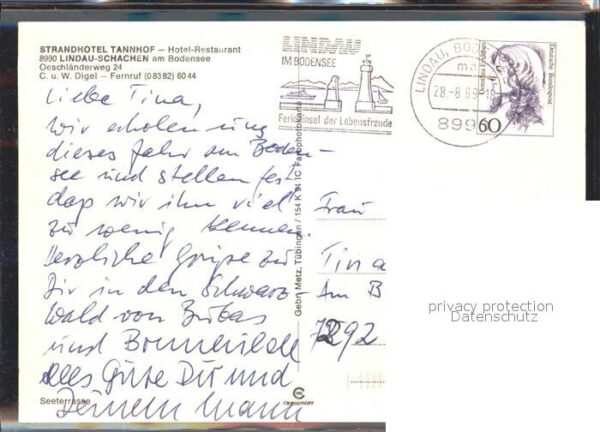 STRANDHOTEL TANNHOF – Hotel-Restaurant
8990 LINDAU-SCHACHEN am Bodensee
Oeschländerweg 24
C. u. W. Digel – Fernruf (0 83 82) 60 44
Liebe Tina,
wir erholen uns
dieses Jahr am Boden-
see und stellen fest
daß wir ihn viel
zu wenig kennen.
Herzliche Grüße zu
Dir in den Schwarz-
wald von
und
Alles Gute Dir und
Deinem Mann
Seeterrasse
Gebr. Metz, Tübingen
LINDAU
IM BODENSEE
Ferieninsel der Lebensfreude
LINDAU, BO
28.-8.89
899
Deutsche Bundespost
60
Frau
Tina
Am B
7292
privacy protection
Datenschutz